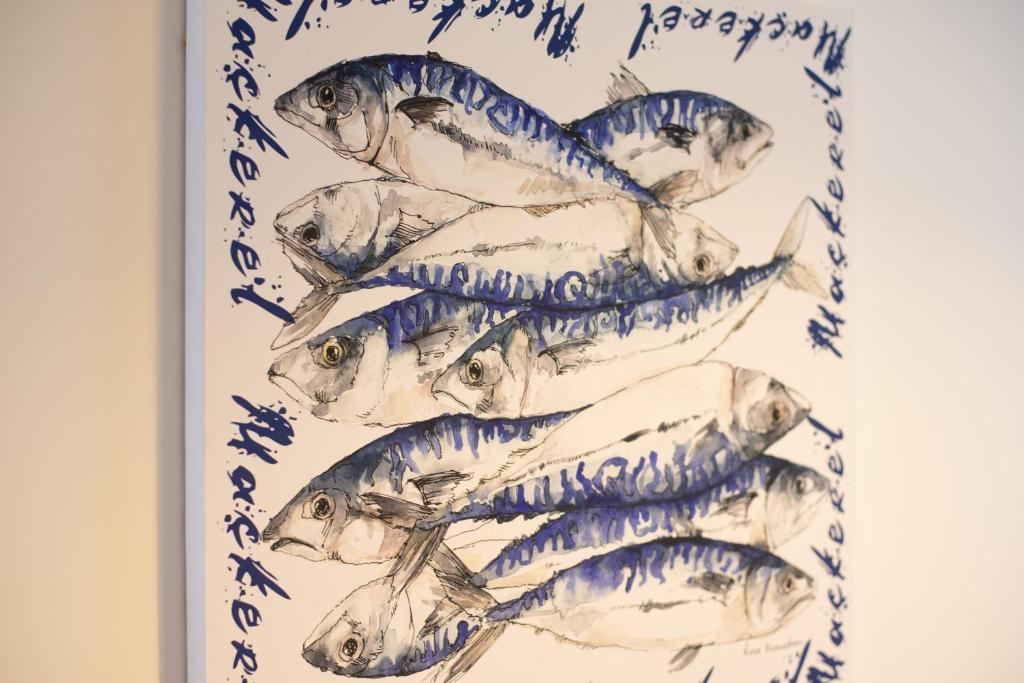 Mackerel
Mackerel
Mackerel
Mackerel
Mackerel
Mackerel
Mackerel
Mackerel